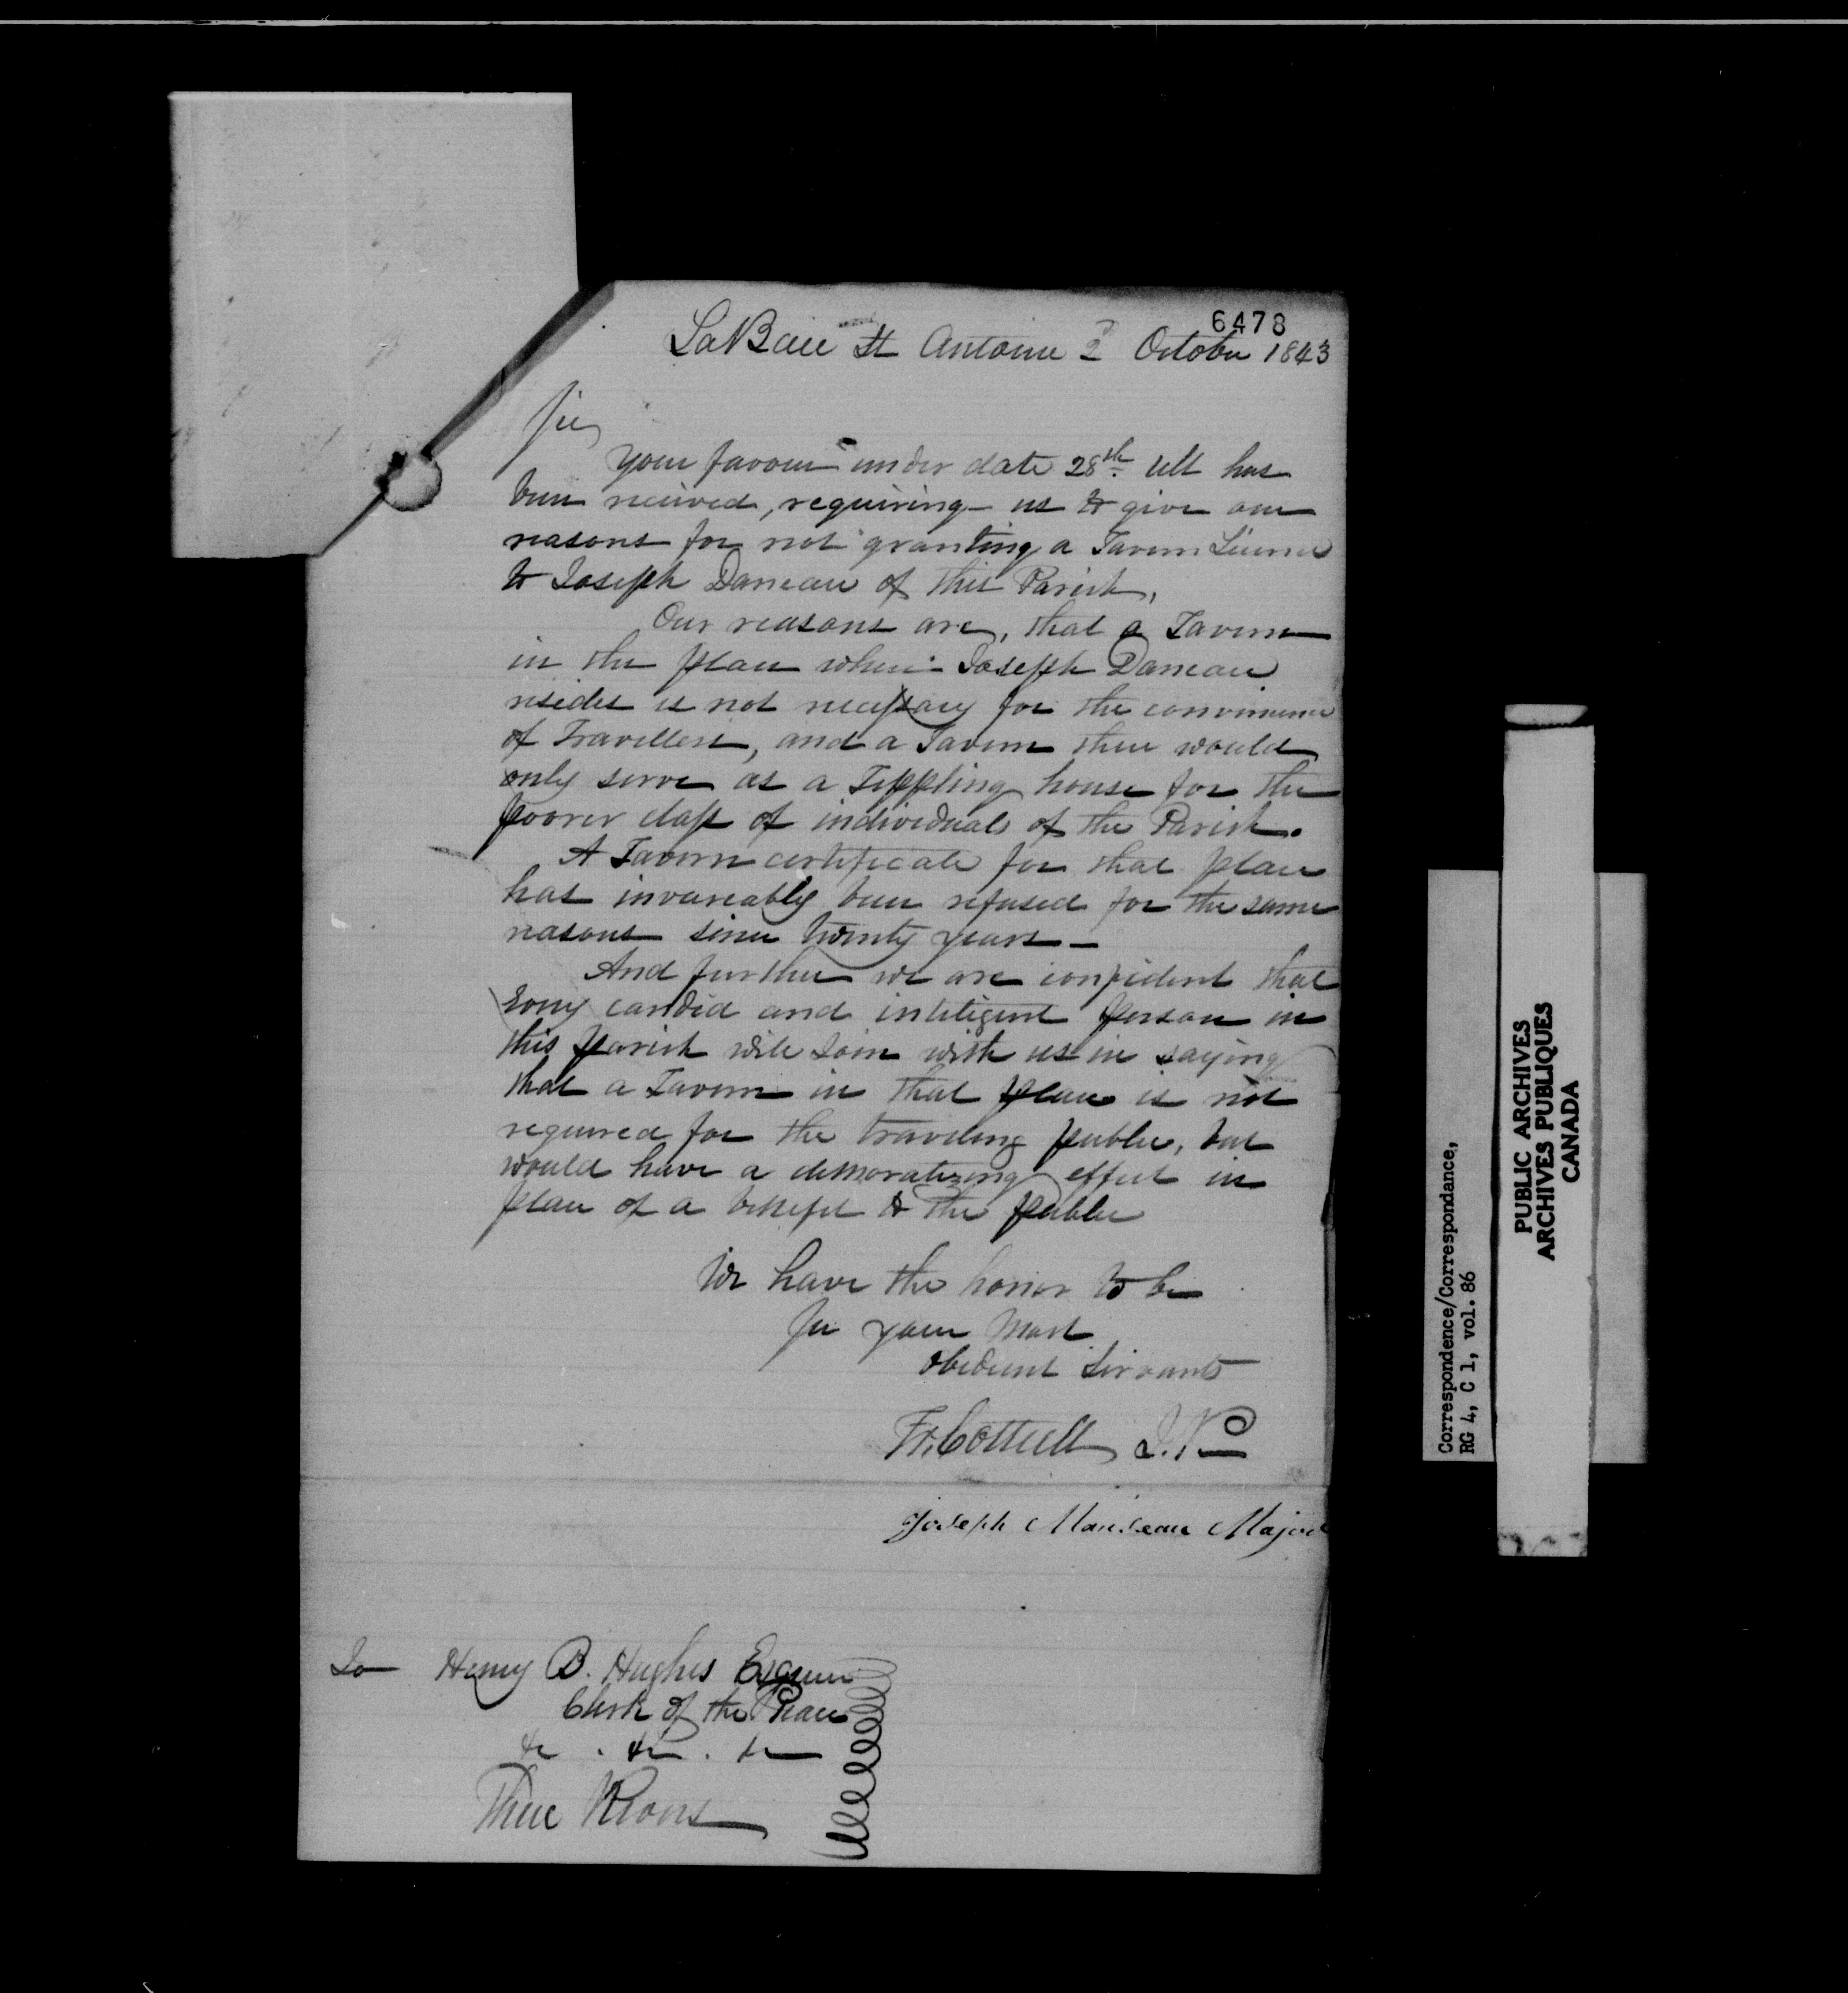 6478
LaBaie St Antoine 2 October 1843
Sir
Your favour under date 28th ult has
been received, requiring us to give our
reasons for not granting a Tavern Licence
to Joseph Daneau of this Parish,
Our reasons are, that a Tavern
in the place where Joseph Daneau
resides is not necessary for the convenience
of Travellers, and a Tavern there would
only serve as a Tippling house for the
poorer class of individuals of the Parish.
A Tavern certificate for that place
has invareably been refused for the same
reasons since twenty years —
And further we are confident that
Every candid and inteligent person in
this parish will Join with us in saying
that a Tavern in that place is not
required for the traveling public, but
would have a demoralizing effect in
place of a benefit to the public
We have the honor to be
Sir your most
obedient Servants
Fr. Cottrell J.P
Joseph Manseau Major
To Henry B. Hughes Esquire
Clerk of the Peace
&c . &c . &c
Three Rivers
Correspondence/Correspondance,
RG 4, C 1, vol. 86
PUBLIC ARCHIVES
ARCHIVES PUBLIQUES
CANADA